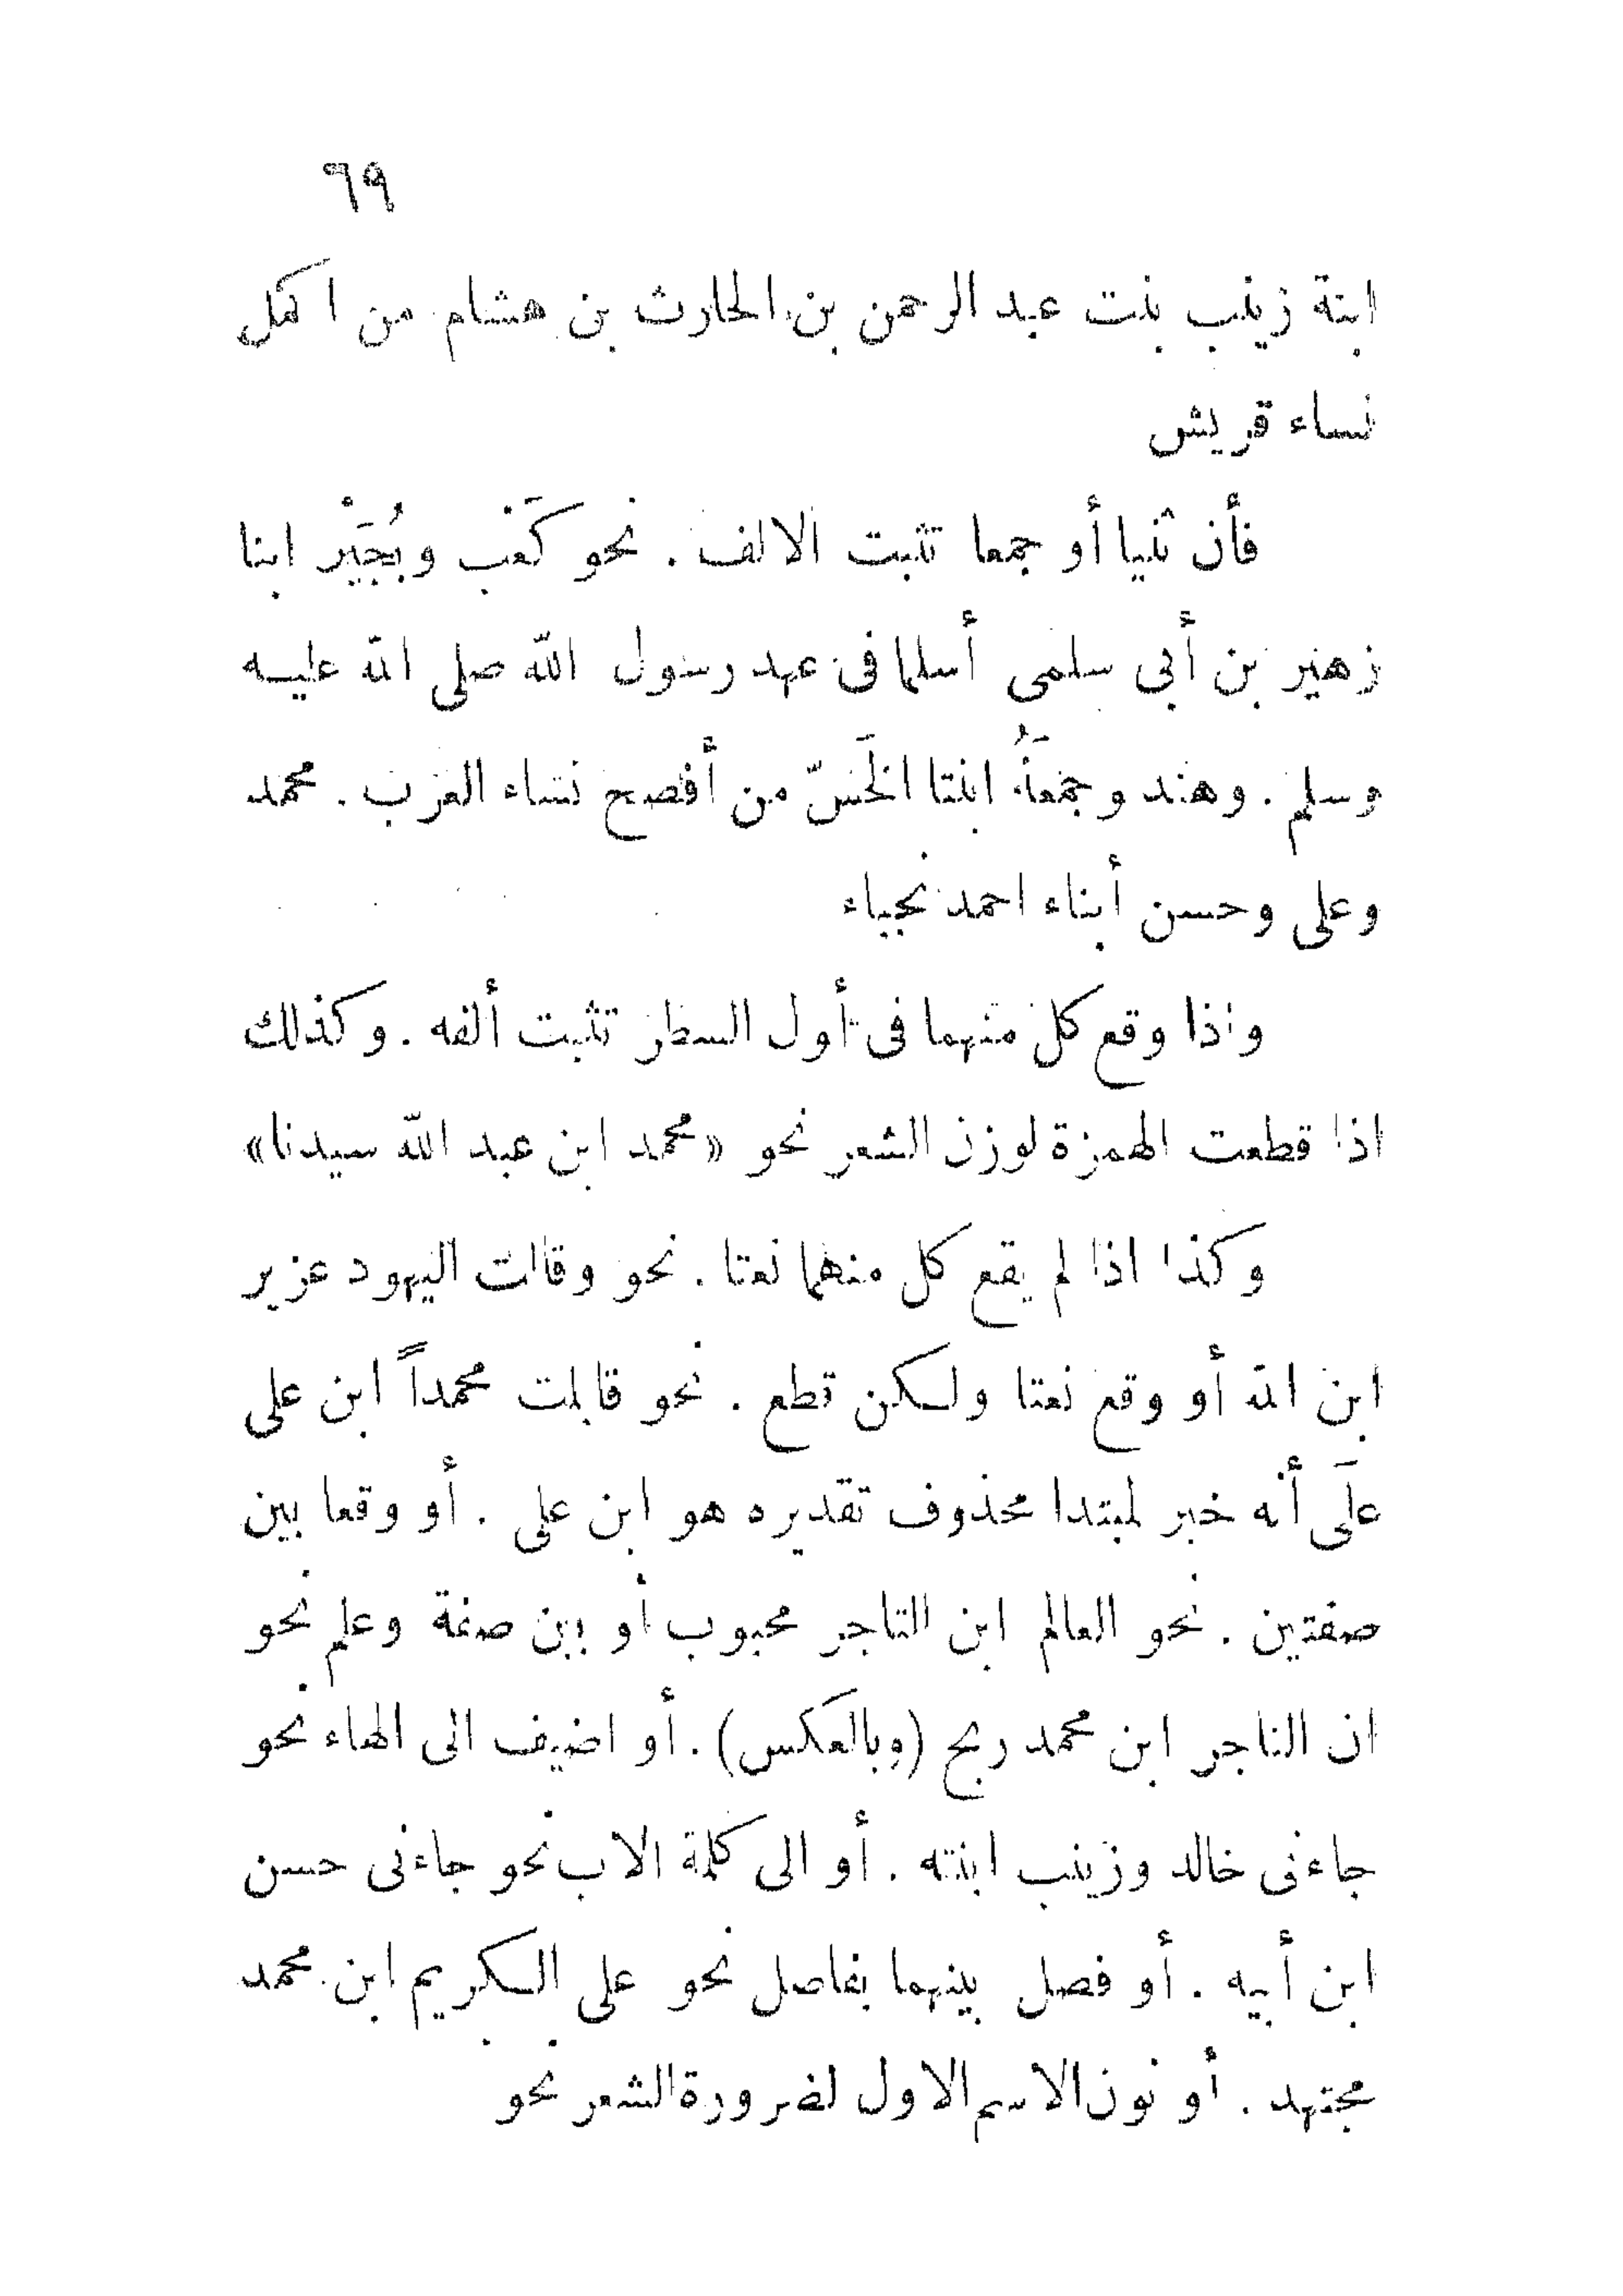 ٦٩
ابنة زينب بنت عبد الرحمن بن الحارث بن هشام من اكمل
نساء قريش
فأن ثنيا أو جمعا تثبت الالف . نحو كَعْب وبُجَيْر ابنا
زهير بن أبى سلمى أسلما فى عهد رسول الله صلى الله عليه
وسلم . وهند وجمعَةُ ابنتا الخَسّ من أفصح نساء العرب . محمد
وعلى وحسن أبناء احمد نجباء
واذا وقع كل منهما فى أول السطر تثبت ألفه . وكذلك
اذا قطعت الهمزة لوزن الشعر نحو «محمد ابن عبد الله سيدنا»
وكذا اذا لم يقع كل منهما نعتا . نحو وقالت اليهود عزير
ابن الله أو وقع نعتا ولكن قطع . نحو قابلت محمداً ابن على
علَى أنه خبر لمبتدا محذوف تقديره هو ابن على . أو وقعا بين
صفتين . نحو العالم ابن التاجر محبوب أو بين صفة وعلم نحو
ان التاجر ابن محمد ربح (وبالعكس) . أو اضيف الى الهاء نحو
جاءنى خالد وزينب ابنته . أو الى كلمة الاب نحو جاءنى حسن
ابن أبيه . أو فصل بينهما بفاصل نحو على الكريم ابن محمد
مجتهد . أو نون الاسم الاول لضرورة الشعر نحو